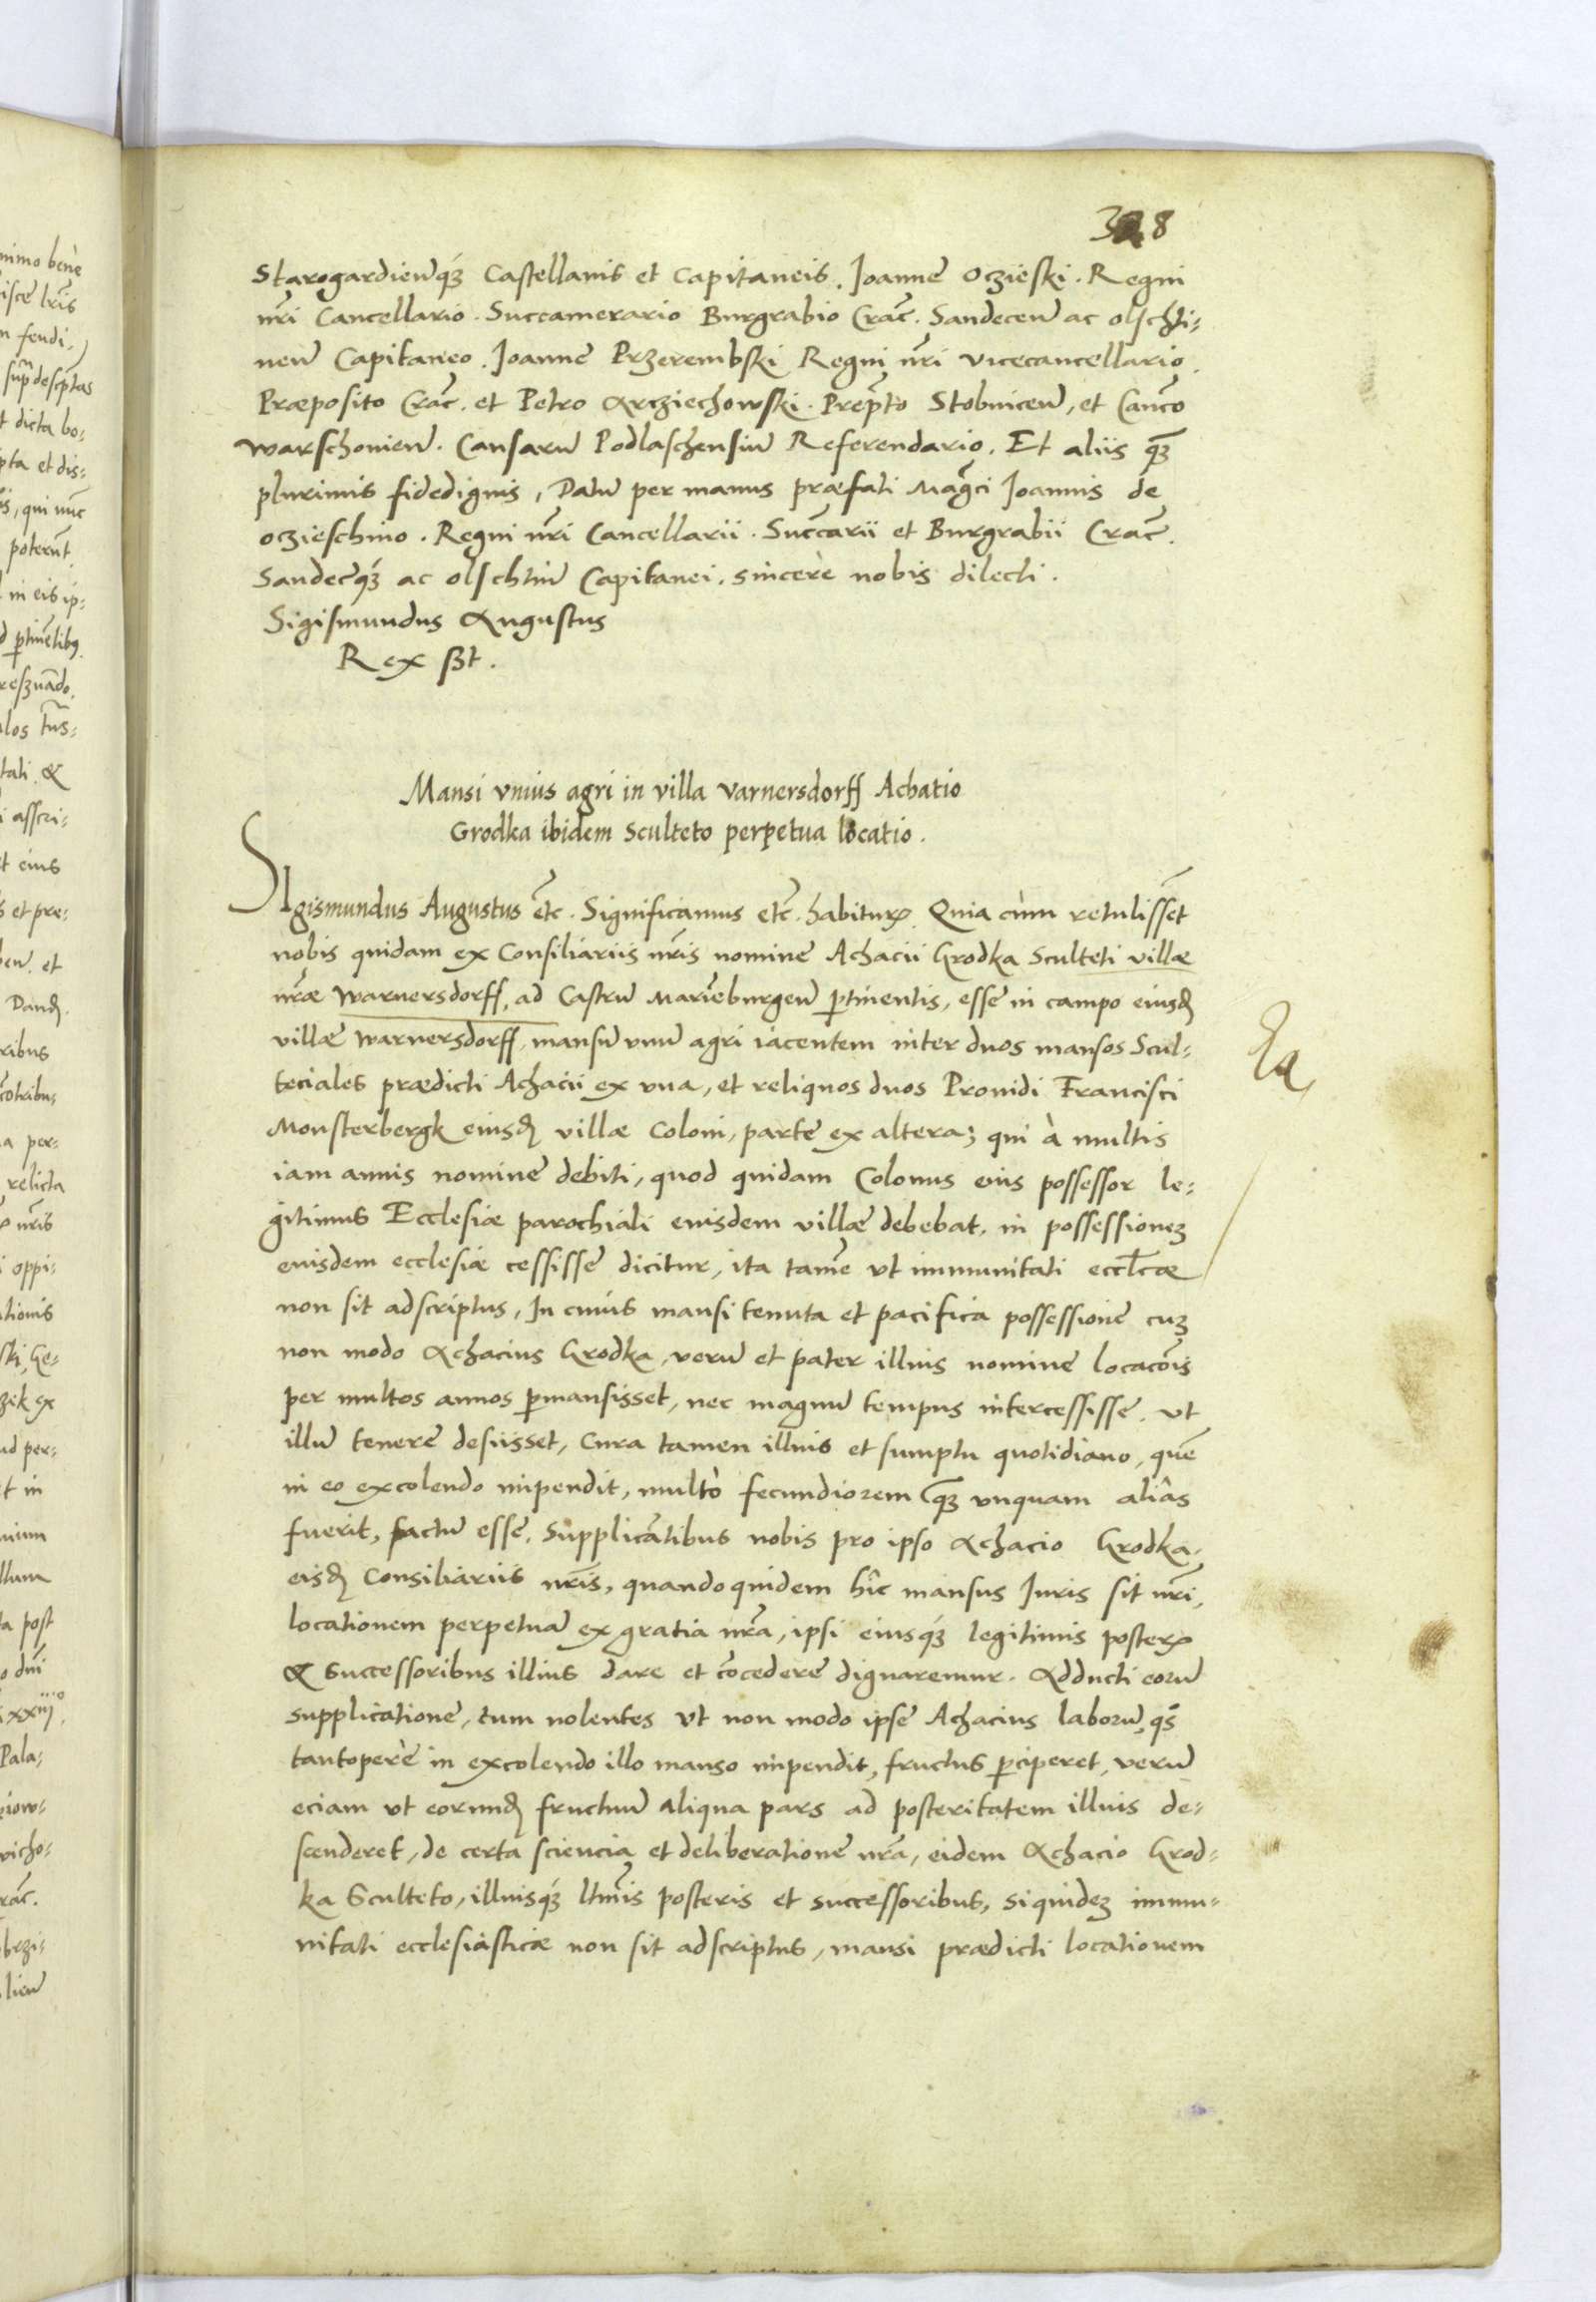 328
Starogardieñqȝ Castellanis et Capitaneis. Joanne Oczieski. Regni
nr̃i Cancellario. Succamerario Burgrabio Crac̃. Sandeceñ ac olschti-
neñ Capitaneo. Joanne Przerembski Regni nr̃i vicecancellario.
Præposito Crac̃. et Petro Arcziechowski. Prep̃to Stobniceñ, et Canc̃o
warschovieñ. Causarũ Podlaschensiũ Referendario. Et aliis q̃ȝ
plurimis fidedignis, Datũ per manus præfati Mag̃ci Joannis de
oczieschino. Regni nr̃i Cancellarii. Succ̃arii et Burgrabii Crac̃.
Sandec̃qȝ ac olschtiñ Capitanei. sincere nobis dilecti.
Sigismundus Augustus
Rex ßt.
Mansi vnius agri in villa Varnersdorff Achatio
Grodka ibidem Sculteto perpetua locatio.
Sigismundus Augustus etc̃. Significamus etc̃. habituꝝ. Quia cùm retulisset
nobis quidam ex Consiliariis nr̃is nomine Achacii Grodka Sculteti villæ
nr̃æ Warnersdorff, ad Castrũ Mariẽburgeñ ꝑtinentis, esse in campo eiusd̃
villæ Warnersdorff, mansũ vnũ agri iacentem inter duos mansos Scul-
teciales prædicti Achacii ex vna, et reliquos duos Prouidi Francisci
Monsterbergk eiusd̃ villæ Coloni, parte ex altera; qui à multis
iam annis nomine debiti, quod quidam Colonus eius possessor le-
gitimus Ecclesiæ parochiali eiusdem villæ debebat, in possessioneȝ
eiusdem ecclesiæ cessisse dicitur, ita tamẽ vt immunitati eccl̃cæ
non sit adscriptus, In cuius mansi tenuta et pacifica possessione cuȝ
non modo Achacius Grodka, verũ et pater illius nomine locac̃ois
per multos annos ꝑmansisset, nec magnũ tempus intercessisse, vt
illũ tenere desiisset, Cura tamen illius et sumptu quotidiano, quẽ
in eo excolendo impendit, multò fecundiorem q̃ȝ vnquam aliâs
fuerit, factũ esse. Supplicãtibus nobis pro ipso Achacio Grodka,
eisd̃ Consiliariis nr̃is, quandoquidem hîc mansus Iuris sit nr̃i,
locationem perpetuã ex gratia nr̃a, ipsi eiusqȝ legitimis posteꝝ
& Successoribus illius dare et cõcedere dignaremur. Adducti eorũ
supplicatione, tum nolentes vt non modo ipse Achacius laborũ, q̃s
tantopere in excolendo illo manso impendit, fructus ꝑciperet, verũ
eciam vt eorund̃ fructuũ aliqua pars ad posteritatem illius de-
scenderet, de certa sciencia et deliberatione nr̃a, eidem Achacio Grod-
ka Sculteto, illiusqȝ ltm̃is posteris et successoribus, siquideȝ immu-
nitati ecclesiasticæ non sit adscriptus, mansi prædicti locationem